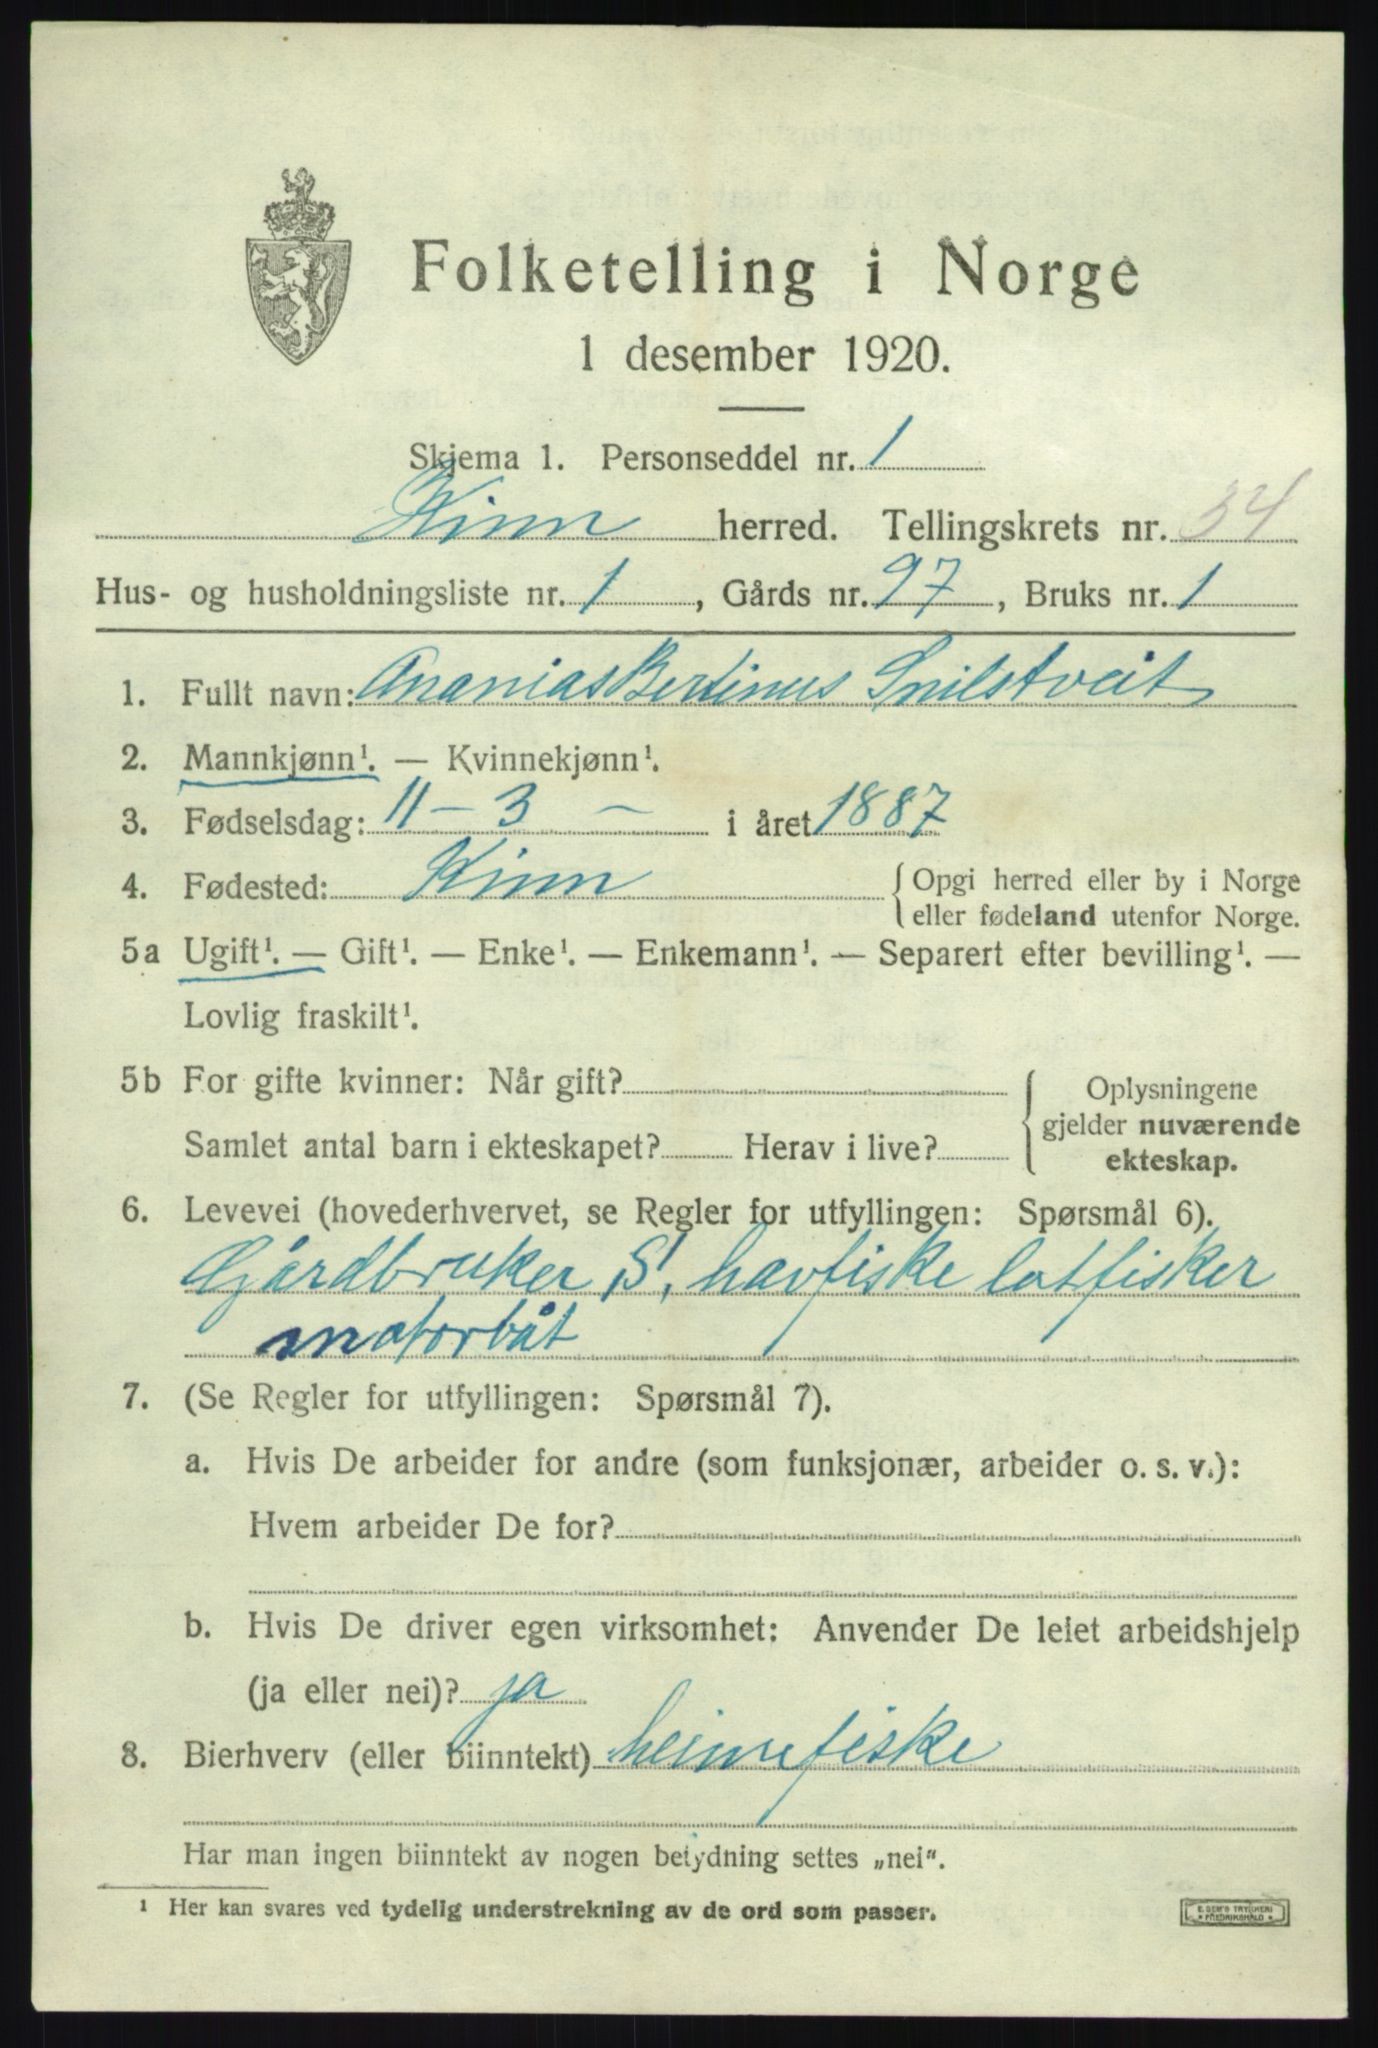 Folketelling i Norge
1 desember 1920.
Skjema 1. Personseddel nr. 1
Kinn herred. Tellingskrets nr. 34
Hus- og husholdningsliste nr. 1, Gårds nr. 97, Bruks nr. 1
1. Fullt navn: Ananias Bertinus Snilstveit
2. Mannkjønn¹. — Kvinnekjønn¹.
3. Fødselsdag: 11 - 3 - i året 1887
4. Fødested: Kinn { Opgi herred eller by i Norge
eller fødeland utenfor Norge.
5a Ugift¹. — Gift¹. — Enke¹. — Enkemann¹. — Separert efter bevilling¹. —
Lovlig fraskilt¹.
5b For gifte kvinner: Når gift? { Oplysningene
gjelder nuværende
Samlet antal barn i ekteskapet? Herav i live?
ekteskap.
6. Levevei (hovederhvervet, se Regler for utfyllingen: Spørsmål 6).
Gårdbruker, S, havfiske lotfisker
motorbåt
7. (Se Regler for utfyllingen: Spørsmål 7).
a. Hvis De arbeider for andre (som funksjonær, arbeider o. s. v.):
Hvem arbeider De for?
b. Hvis De driver egen virksomhet: Anvender De leiet arbeidshjelp
(ja eller nei)? ja
8. Bierhverv (eller biinntekt) heimefiske
Har man ingen biinntekt av nogen betydning settes „nei“.
¹ Her kan svares ved tydelig understrekning av de ord som passer.
E. SEM'S TRYKKERI
FREDRIKSHALD